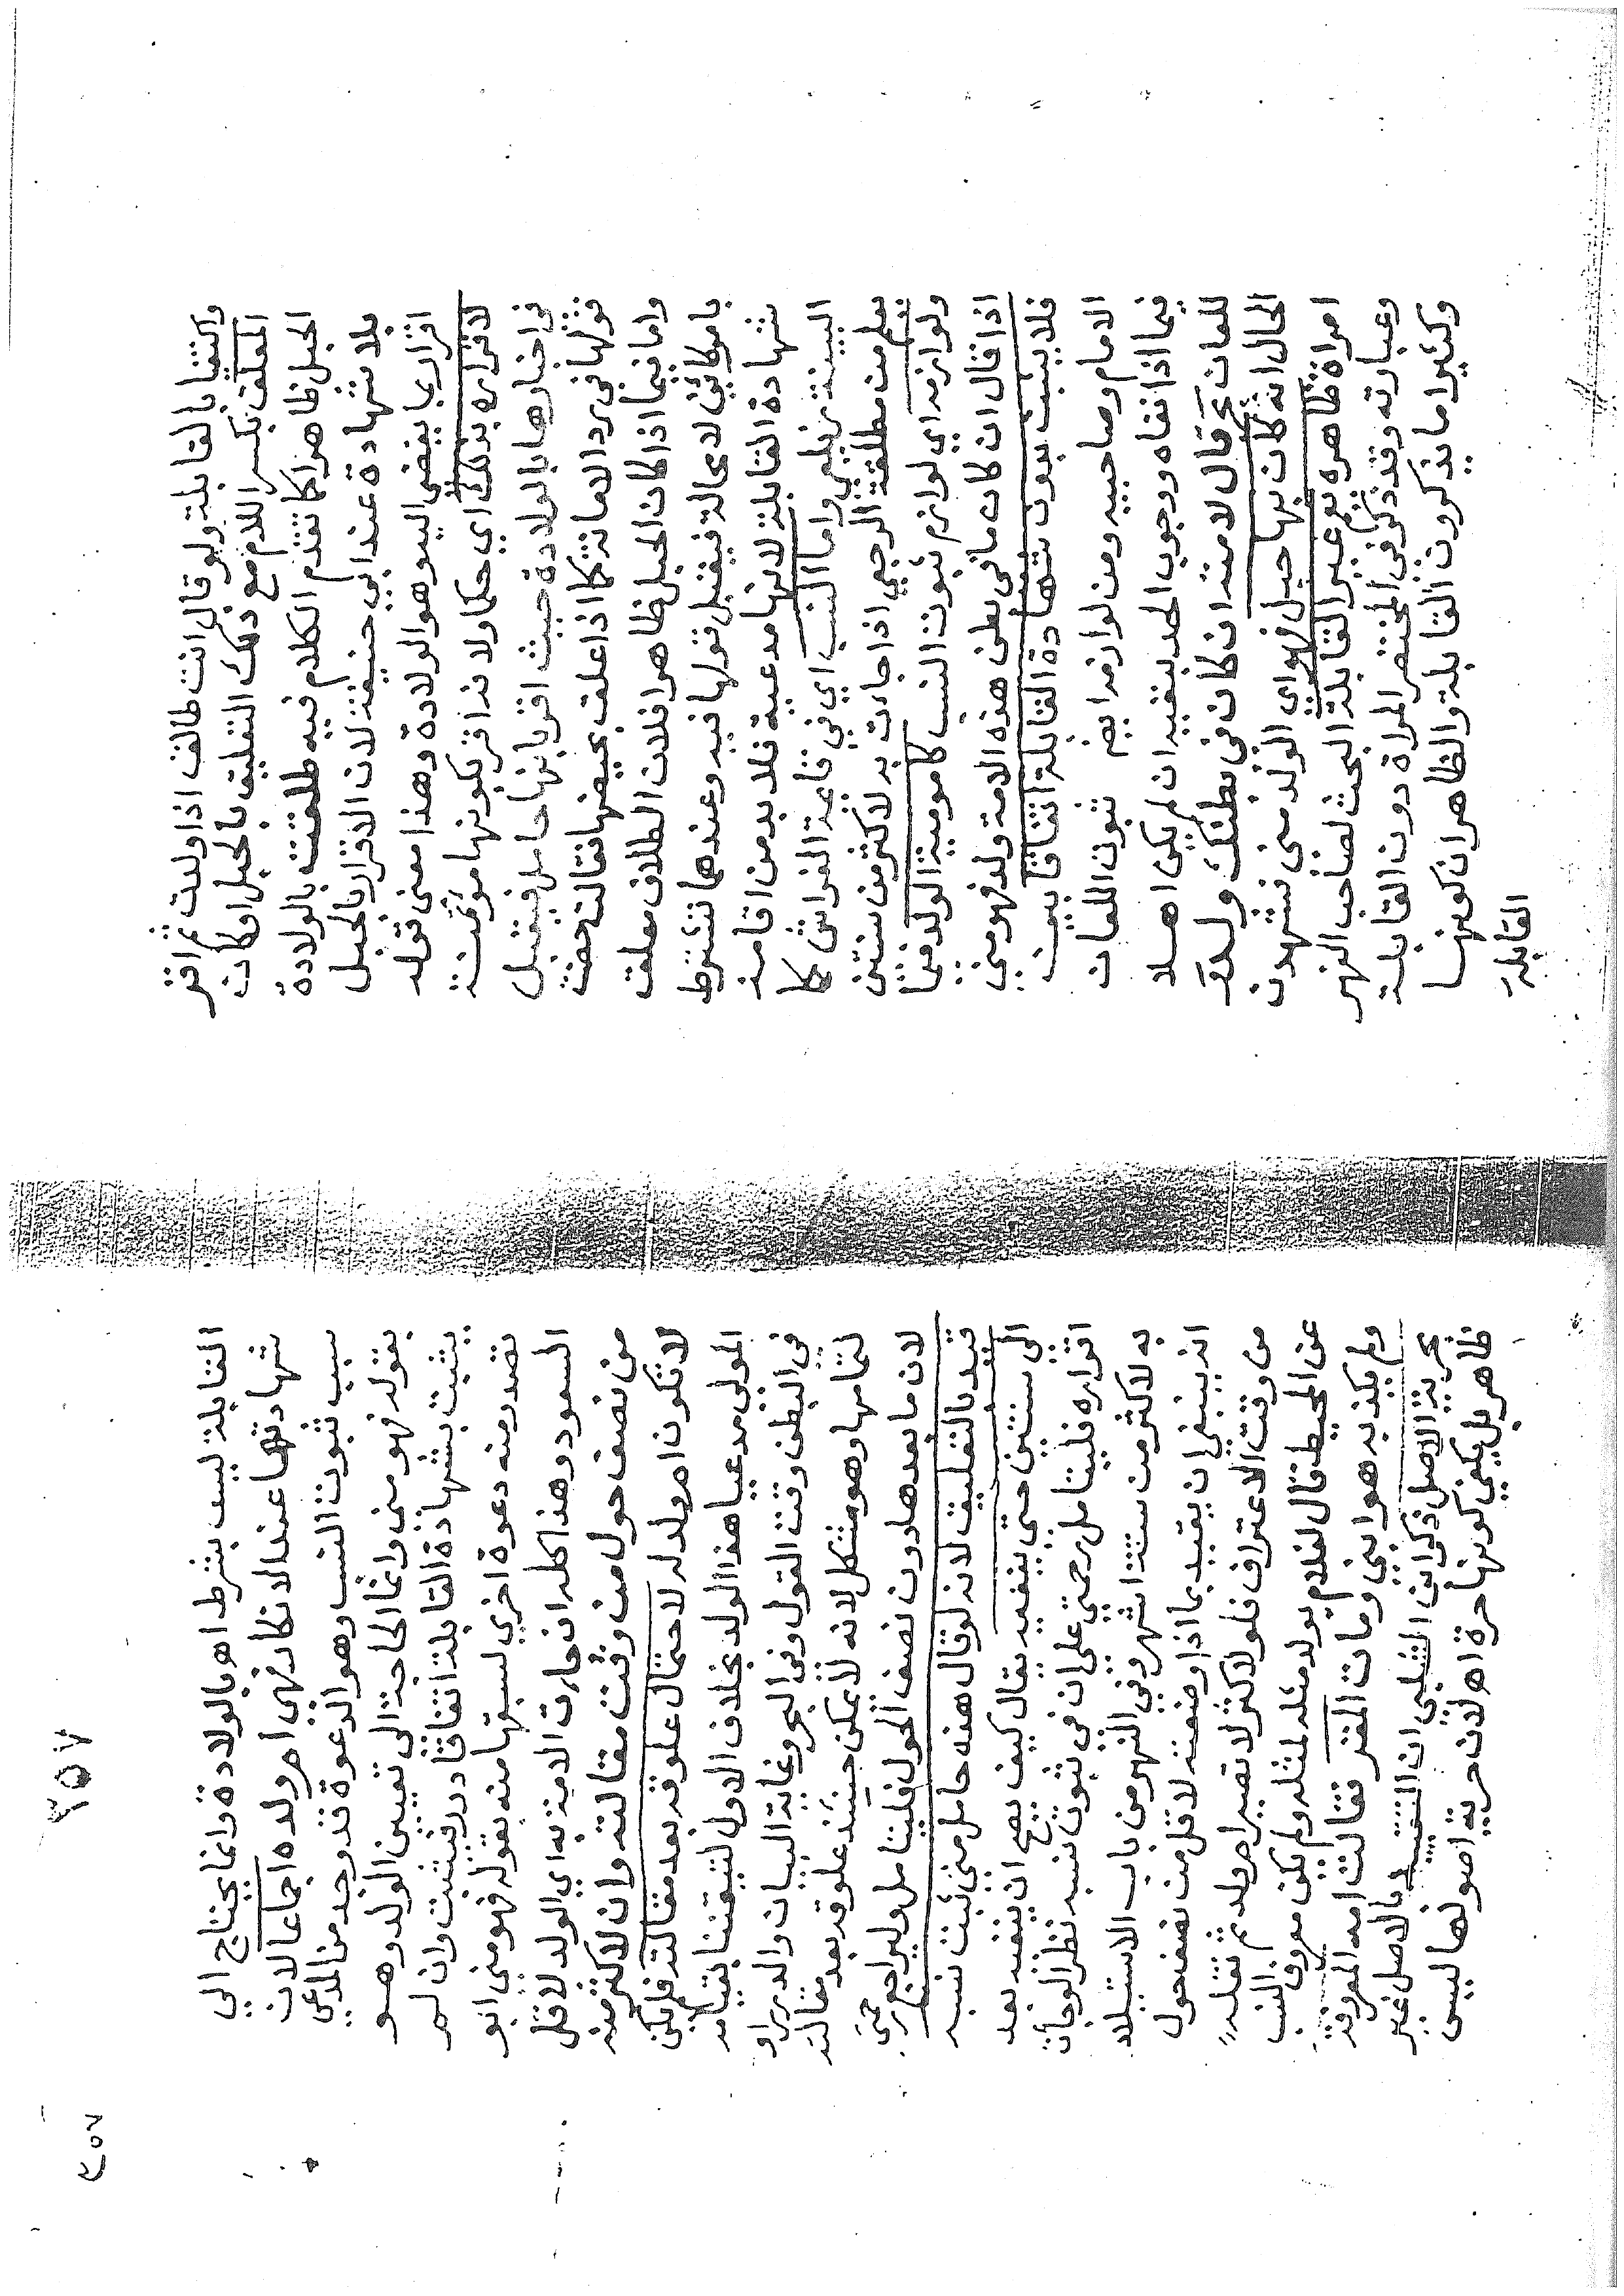 واكتفيا بالقابلة ولو قال انت طالق اذا ولدت ثم اقر
المعلق بكسر اللام مع ذلك التعليق بالحبل او كان
الحبل ظاهرا كما تقدم الكلام فيه طلقت بالولادة
بلا شهادة عند ابي حنيفة لان الاقرار بالحبل
اقرار بما يفضي اليه وهو الولادة وهذا معنى قوله
لاقراره بذلك اي حكما ولانه اقر بكونها مؤتمنة
في اخبارها بالولادة حيث اقر بانها حامل فيقبل
قولها في رد الامانة كما اذا علق بحيضها فقالت حضت
واما فيما اذا كان الحبل ظاهرا فلان الطلاق معلق
بامر كائن لا محالة فيقبل قولها فيه وعندهما تشترط
شهادة القابلة لانها مدعية فلا بد من اقامة
البينة زيلعي واما النسب اي في قائمة الفراش كما
يعلم من مطلقة الرجعي اذا جاءت به لاكثر من سنتين
ولوازمه اي لوازم ثبوت النسب كامومية الولد فيما
اذا قال ان كان ما في بطن هذه الامة ولد فهو مني
فلا يثبت بدون شهادة القابلة اتفاقا بين
الامام وصاحبيه ومن لوازمه ايضم ثبوت اللعان
فيما اذا نفاه ووجوب الحد بنفيه ان لم يكن اهلا
للعان بحر قال لامته ان كان في بطنك ولد او
الحال انه كان بها حبل فهو اي الولد مني فشهدت
امراة ظاهره يعم غير القابلة البحث لصاحب النهر
وعبارته وقد ذكر في المختصر المراة دون القابلة
وكثيرا ما يذكرون القابلة والظاهر ان كونها
القابلة
٣٥٧
٣٥٧
القابلة ليس بشرط اهـ بالولادة وانما يحتاج الى
شهادتها عند الانكار فهي ام ولده اجماعا لان
سبب ثبوت النسب وهو الدعوة قد وجد من المدعي
بقوله فهو مني وانما الحاجة الى تعيين الولد وهو
يثبت بشهادة القابلة اتفاقا درر فيثبت وان لم
تصدر منه دعوة اخرى لسبقها منه بقوله فهو مني ابو
السعود وهذا كله ان جاءت الامة به اي الولد لاقل
من نصف حول من وقت مقالته وان لاكثر منه
لا تكون ام ولد له لاحتمال علوقه بعد مقالته فلم يكن
المولى مدعيا هذا الولد بخلاف الاول لتيقننا بقيامه
في البطن وقت القول وفي البحر وغاية البيان والدرر او
لتمامها وهو مشكل لانه لا يمكن حينئذ علوقه بعد مقالته
لان ما بعدها دون نصف الحول فليتامل وليراجع رحمتي
قيد بالتعليق لانه لو قال هذه حامل مني ثبت نسبه
الى سنتين حتى ينفيه يقال كيف يصح ان ينفيه بعد
اقراره فليتامل رحمتي على ان في ثبوت نسبه نظر الوجات
به لاكثر من ستة اشهر وفي النهر من باب الاستيلاد
انه ينبغي ان يقيد بما اذا وضعته لاقل من نصف حول
من وقت الاعتراف فلو لاكثر لا تصير ام ولد ثم نقله
عن المحيط قال لغلام يولد مثله لمثله ولم يكن معروف النسب
ولم يكذبه هو ابني ومات المقر فقالت امه المعروفة
بحرية الاصل ذكر ابن الشلبي ان التقييد بالاصل غير
ظاهر بل يكفي كونها حرة اهـ لان حرية اصولها ليس